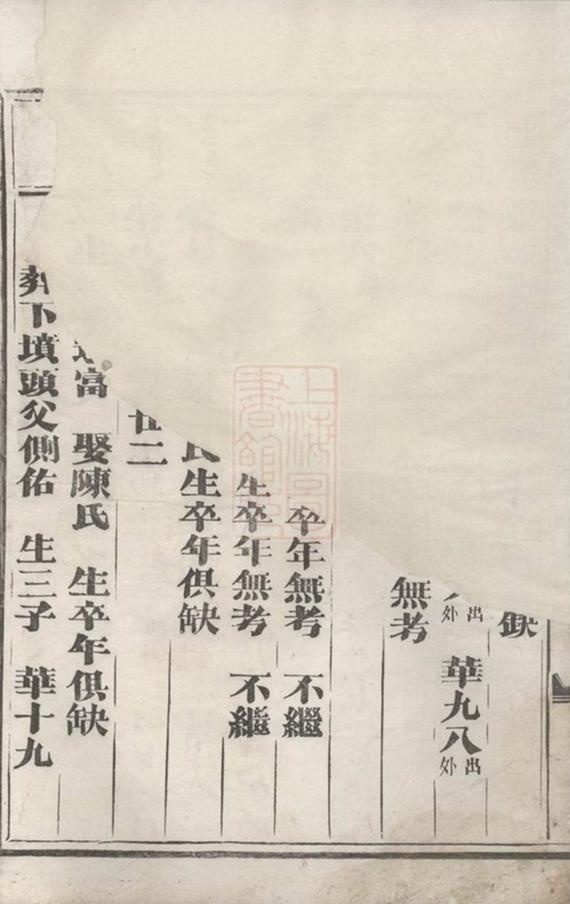 缺
出外 華九八 出外
無考
卒年無考 不繼
生卒年無考 不繼
氏生卒年俱缺
廿二
富 娶陳氏 生卒年俱缺
下墳頭父側佑 生三子 華十九
上海圖書館藏